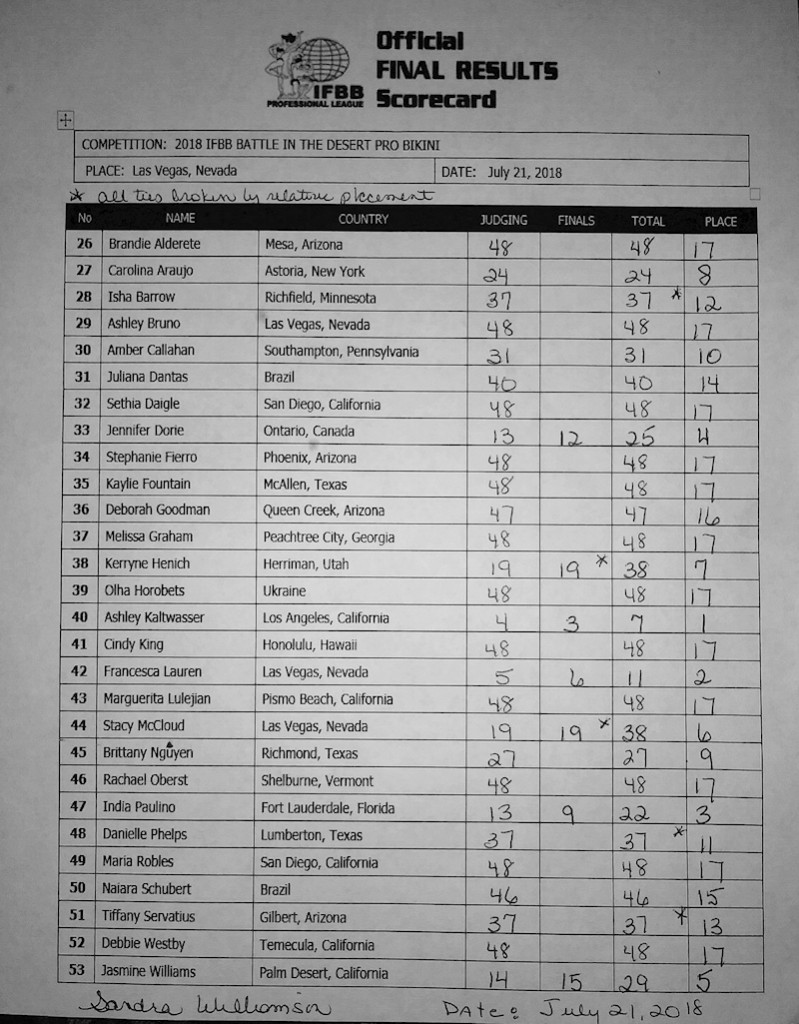 Official
FINAL RESULTS
Scorecard
IFBB
PROFESSIONAL LEAGUE
COMPETITION: 2018 IFBB BATTLE IN THE DESERT PRO BIKINI
PLACE: Las Vegas, Nevada DATE: July 21, 2018
* all ties broken by relative placement
No NAME COUNTRY JUDGING FINALS TOTAL PLACE
26 Brandie Alderete Mesa, Arizona 48 48 17
27 Carolina Araujo Astoria, New York 24 24 8
28 Isha Barrow Richfield, Minnesota 37 37 * 12
29 Ashley Bruno Las Vegas, Nevada 48 48 17
30 Amber Callahan Southampton, Pennsylvania 31 31 10
31 Juliana Dantas Brazil 40 40 14
32 Sethia Daigle San Diego, California 48 48 17
33 Jennifer Dorie Ontario, Canada 13 12 25 4
34 Stephanie Fierro Phoenix, Arizona 48 48 17
35 Kaylie Fountain McAllen, Texas 48 48 17
36 Deborah Goodman Queen Creek, Arizona 47 47 16
37 Melissa Graham Peachtree City, Georgia 48 48 17
38 Kerryne Henich Herriman, Utah 19 19 * 38 7
39 Olha Horobets Ukraine 48 48 17
40 Ashley Kaltwasser Los Angeles, California 4 3 7 1
41 Cindy King Honolulu, Hawaii 48 48 17
42 Francesca Lauren Las Vegas, Nevada 5 6 11 2
43 Marguerita Lulejian Pismo Beach, California 48 48 17
44 Stacy McCloud Las Vegas, Nevada 19 19 * 38 6
45 Brittany Nguyen Richmond, Texas 27 27 9
46 Rachael Oberst Shelburne, Vermont 48 48 17
47 India Paulino Fort Lauderdale, Florida 13 9 22 3
48 Danielle Phelps Lumberton, Texas 37 37 * 11
49 Maria Robles San Diego, California 48 48 17
50 Naiara Schubert Brazil 46 46 15
51 Tiffany Servatius Gilbert, Arizona 37 37 * 13
52 Debbie Westby Temecula, California 48 48 17
53 Jasmine Williams Palm Desert, California 14 15 29 5
Sandra Williamson DATE: July 21, 2018